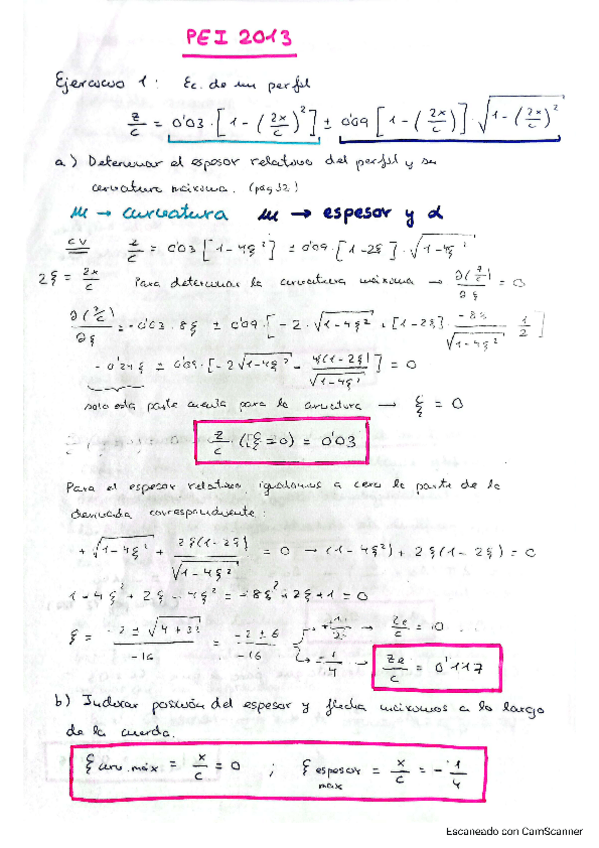 PEI 2013
Ejercicio 1: Ec. de un perfil
z/c = 0'03 · [1 - (2x/c)²] ± 0'09 [1 - (2x/c)] · √(1 - (2x/c)²)
a) Determinar el espesor relativo del perfil y su
curvatura máxima. (pág 32)
m → curvatura m → espesor y α
CV z/c = 0'03 [1 - 4ξ²] ± 0'09 · [1 - 2ξ] · √(1 - 4ξ²)
2ξ = 2x/c Para determinar la curvatura máxima → ∂(z/c)/∂ξ = 0
∂(z/c)/∂ξ = -0'03 · 8ξ ± 0'09 · [-2 · √(1 - 4ξ²) + [1 - 2ξ] · -8ξ/√(1 - 4ξ²) 1/2]
- 0'24ξ ± 0'09 · [-2√(1 - 4ξ²) - 4(1 - 2ξ)/√(1 - 4ξ²)] = 0
solo esta parte cuenta para la curvatura → ξ = 0
z/c · (ξ = 0) = 0'03
Para el espesor relativo, igualamos a cero la parte de la
derivada correspondiente:
+ √(1 - 4ξ²) + 2ξ(1 - 2ξ)/√(1 - 4ξ²) = 0 → (1 - 4ξ²) + 2ξ(1 - 2ξ) = 0
1 - 4ξ² + 2ξ - 4ξ² = -8ξ² + 2ξ + 1 = 0
ξ = -2 ± √(4 + 32)/-16 = -2 ± 6/-16 → 1/2 → ze/c = 0
→ -1/4 → ze/c = 0'117
b) Indicar posición del espesor y flecha máximos a lo largo
de la cuerda.
ξ curv. máx = x/c = 0 ; ξ espesor máx = x/c = -1/4
Escaneado con CamScanner